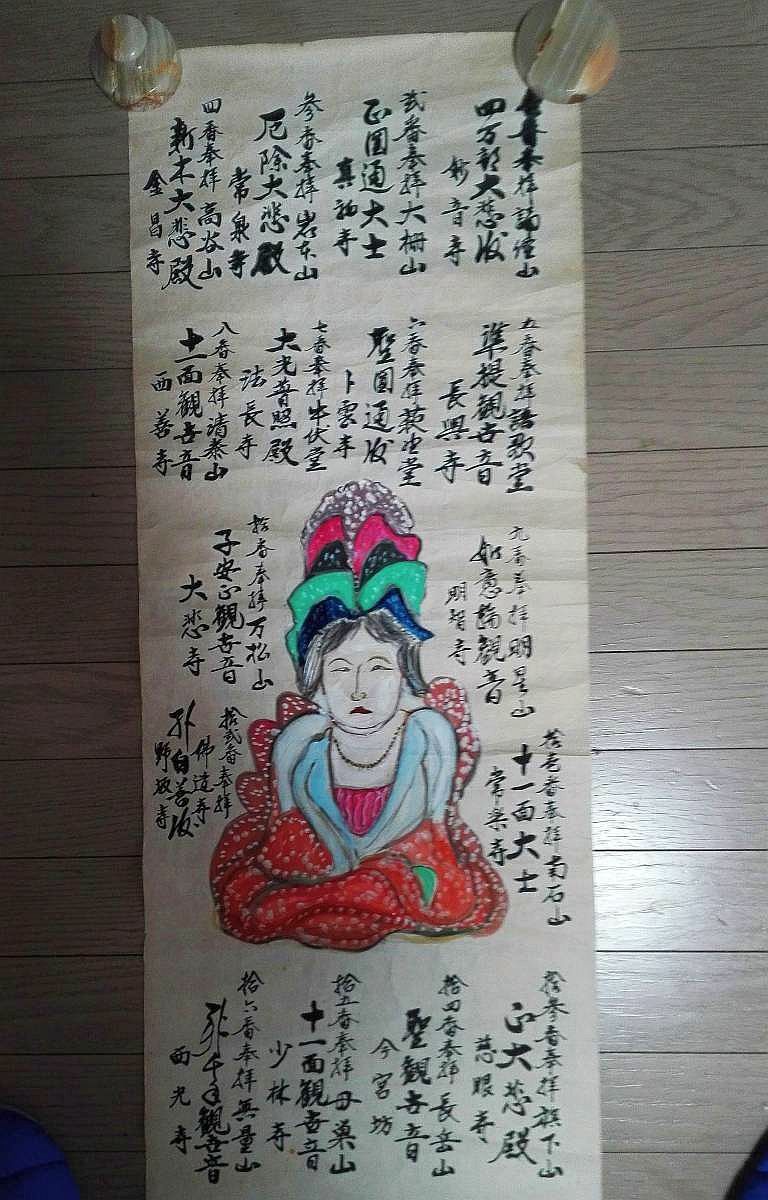 壱番奉拝誦経山
四万部大悲殿
妙音寺
弐番奉拝大棚山
正圓通大士
真福寺
参番奉拝岩本山
厄除大悲殿
常泉寺
四番奉拝高谷山
新木大悲殿
金昌寺
五番奉拝語歌堂
準提観世音
長興寺
六番奉拝荻堂
聖圓通殿
卜雲寺
七番奉拝牛伏堂
大光普照殿
法長寺
八番奉拝清泰山
十一面観世音
西善寺
九番奉拝明星山
如意輪観音
明智寺
拾番奉拝万松山
子安正観世音
大悲寺
拾壱番奉拝南石山
十一面大士
常楽寺
拾弐番奉拝
佛道寺
野坂寺
拾参番奉拝旗下山
正大悲殿
慈眼寺
拾四番奉拝長岳山
聖観世音
今宮坊
拾五番奉拝母巣山
十一面観世音
少林寺
拾六番奉拝無量山
千手観世音
西光寺